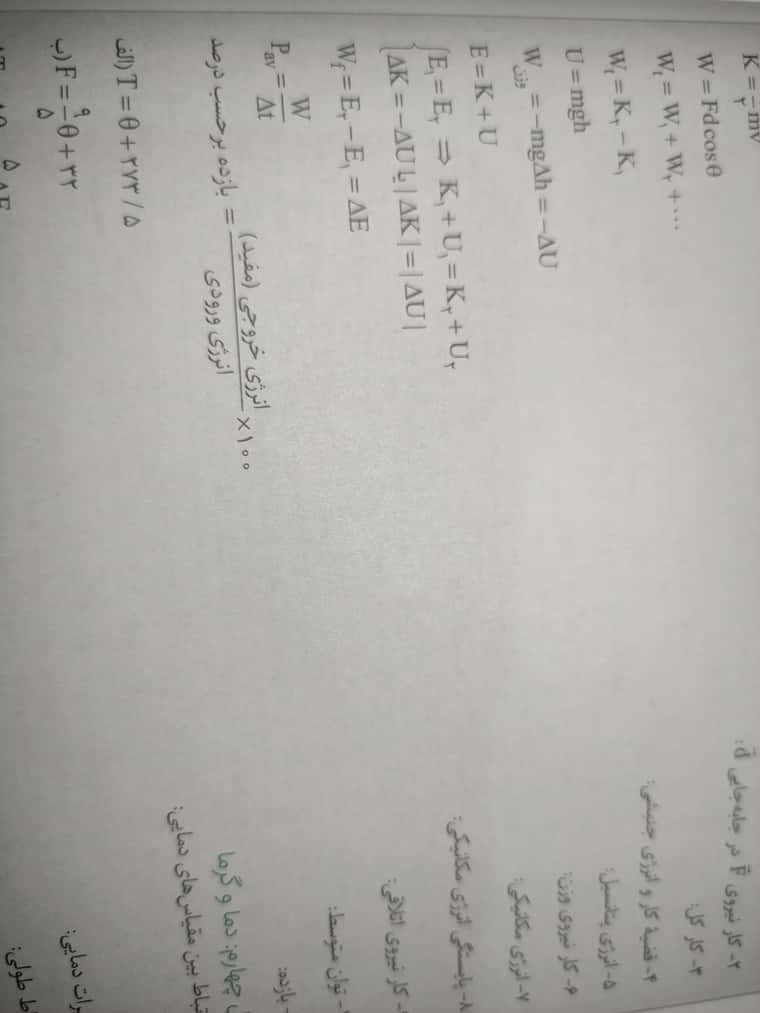 K = ۱/۲ mv
۲- کار نیروی F⃗ در جابه‌جایی d⃗: W = Fd cosθ
۳- کار کل: Wₜ = W₁ + W₂ + ...
۴- قضیهٔ کار و انرژی جنبشی: Wₜ = K₂ − K₁
۵- انرژی پتانسیل: U = mgh
۶- کار نیروی وزن: W وزن = −mgΔh = −ΔU
۷- انرژی مکانیکی: E = K + U
۸- پایستگی انرژی مکانیکی: E₁ = E₂ ⇒ K₁ + U₁ = K₂ + U₂
ΔK = −ΔU یا |ΔK| = |ΔU|
کار نیروی اتلافی: W_f = E₂ − E₁ = ΔE
توان متوسط: P_av = W/Δt
بازده: بازده برحسب درصد = انرژی خروجی (مفید)/انرژی ورودی × ۱۰۰
چهارم: دما و گرما
مقیاس‌های دمایی: الف) T = θ + ۲۷۳/۵
ب) F = ۹/۵ θ + ۳۲
دمایی:
طولی: